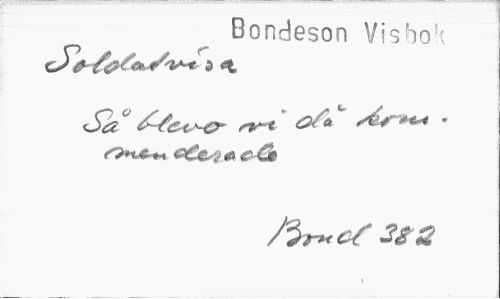 Bondeson Visbok
Soldatvisa
Så blevo vi då kom-
menderade
Bond 382